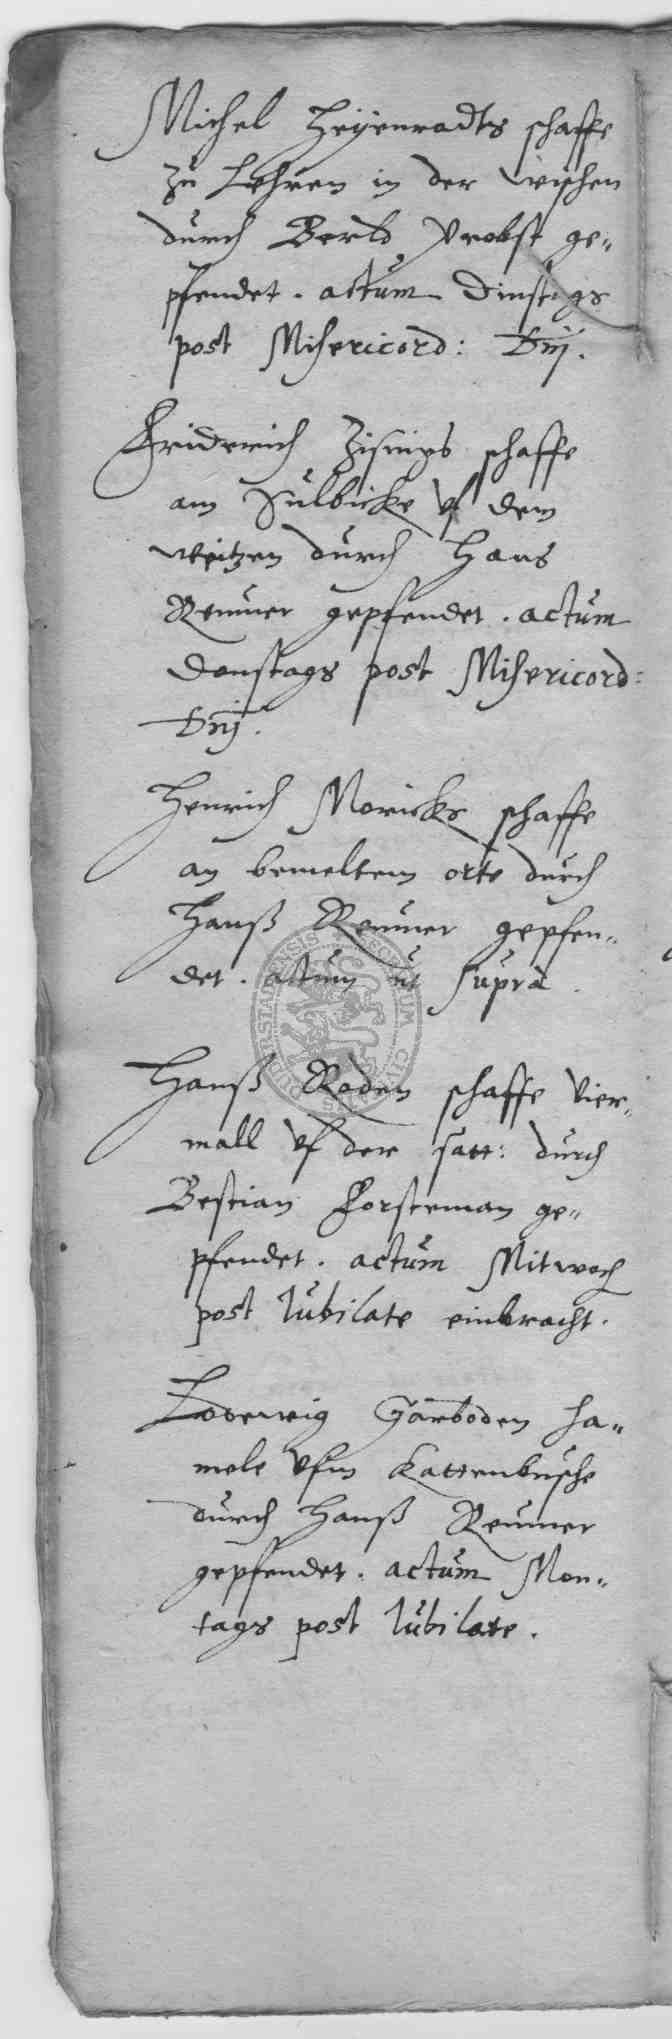 Michel Heyenradts schaffe
zu Lehren in der wischen
durch Berld Probst ge„
pfendet. actum Dinstags
post Misericord: Dnj.
Friderich Zisings schaffe
am Sulbicke vf dem
weitzen durch Hans
Renner gepfendet. actum
Donstags post Misericord:
Dnj.
Henrich Moricks schaffe
an bemeltem orte durch
Hanß Renner gepfen„
det. actum ut supra
Hanß Roden schaffe vier„
mall vf der satt: durch
Bestian Forsteman ge„
pfendet. actum Mitwoch
post Iubilate einbracht.
Lodewig Garboden ha„
mele vfm Kattenbusche
durch Hanß Renner
gepfendet. actum Mon„
tags post Iubilate.